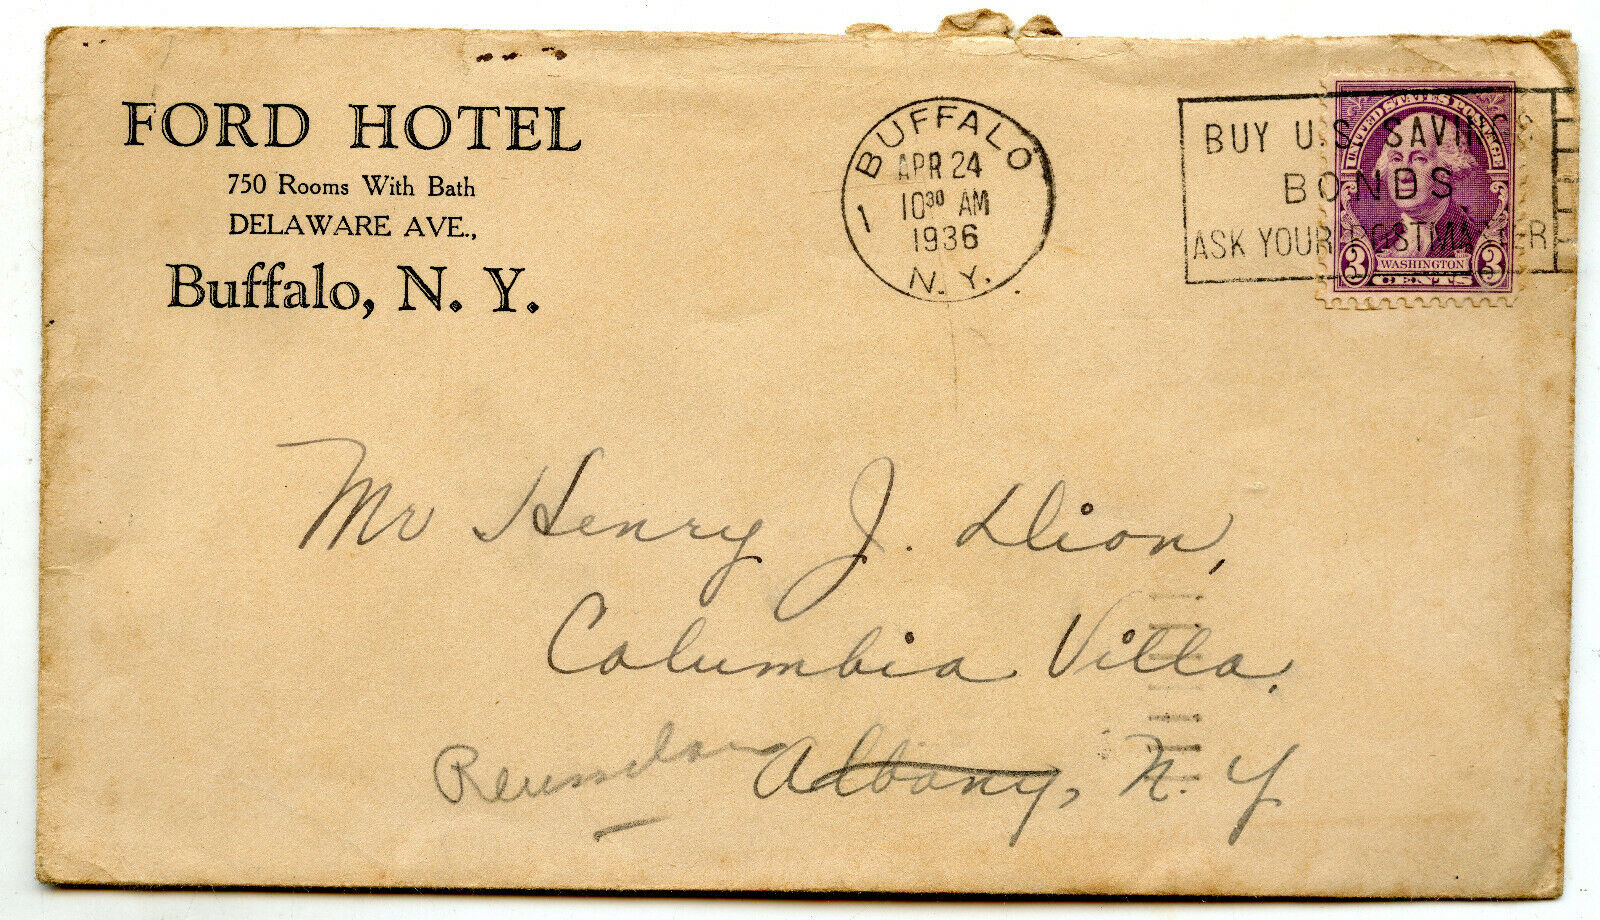 FORD HOTEL
750 Rooms With Bath
DELAWARE AVE.,
Buffalo, N. Y.
BUFFALO
APR 24
10 30 AM
1936
1
N. Y.
BUY U.S. SAVINGS
BONDS
ASK YOUR POSTMASTER
UNITED STATES POSTAGE
3 WASHINGTON 3
CENTS
Mr Henry J. Dion,
Columbia Villa.
Albany, N. Y